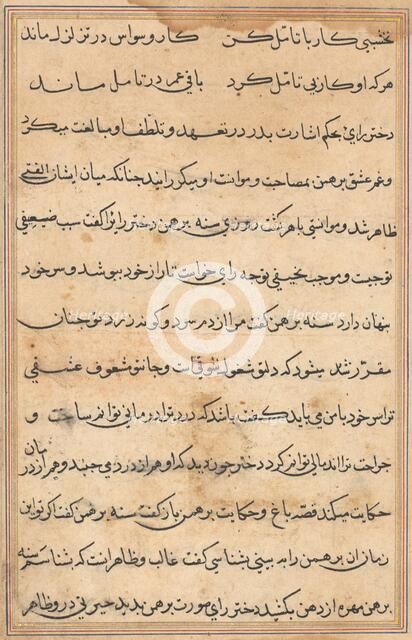 نخشبی کار با تامل کن کار وسواس در تزلزل ماند
هر که او کار بی تامل کرد باقی عمر در تامل ماند
دختر رای بحکم اشارت پدر در تعهد و تلطف او مبالغت میکرد
و غم عشق برهمن بمصاحبت و موانست او میگذرانید چنانکه میان ایشان الفتی
ظاهر شد و موانستی باهر گشت روزی سنه برهمن دختر رای را گفت سبب ضعیفی
تو چیست و موجب نحیفی تو چه رای خواست تا راز خود بپوشد و سر خود
پنهان دارد سنه برهمن گفت من از درسرد و گونه زرد تو چنان
مقرر شد میشود که دلت مشعول شوقیست و جانت مشعوف عشقی
تو اسرخود با من می باید گفت باشد که درد ترا درمانی توانم ساخت و
جراحت ترا اندمالی توانم کرد دختر چون دید که او هم از در می جنبد و هم از در
حکایت میکند قصه باغ و حکایت برهمن باز گفت سنه برهمن گفت اگر تو این
زمان آن برهمن را به بینی بشناسی گفت غالب و ظاهر اینست که بشناسم سنه
برهمن مهره از دهن بکشید دختر رای صورت برهمن بدید حیرتی در و ظاهر
Heritage
Heritage